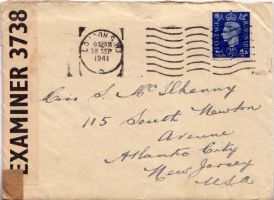 EXAMINER 3738
LONDON S.W.
18 SEP
1941
POSTAGE
Miss S McIlhenny
115 South Newton
Avenue
Atlantic City
New Jersey
USA